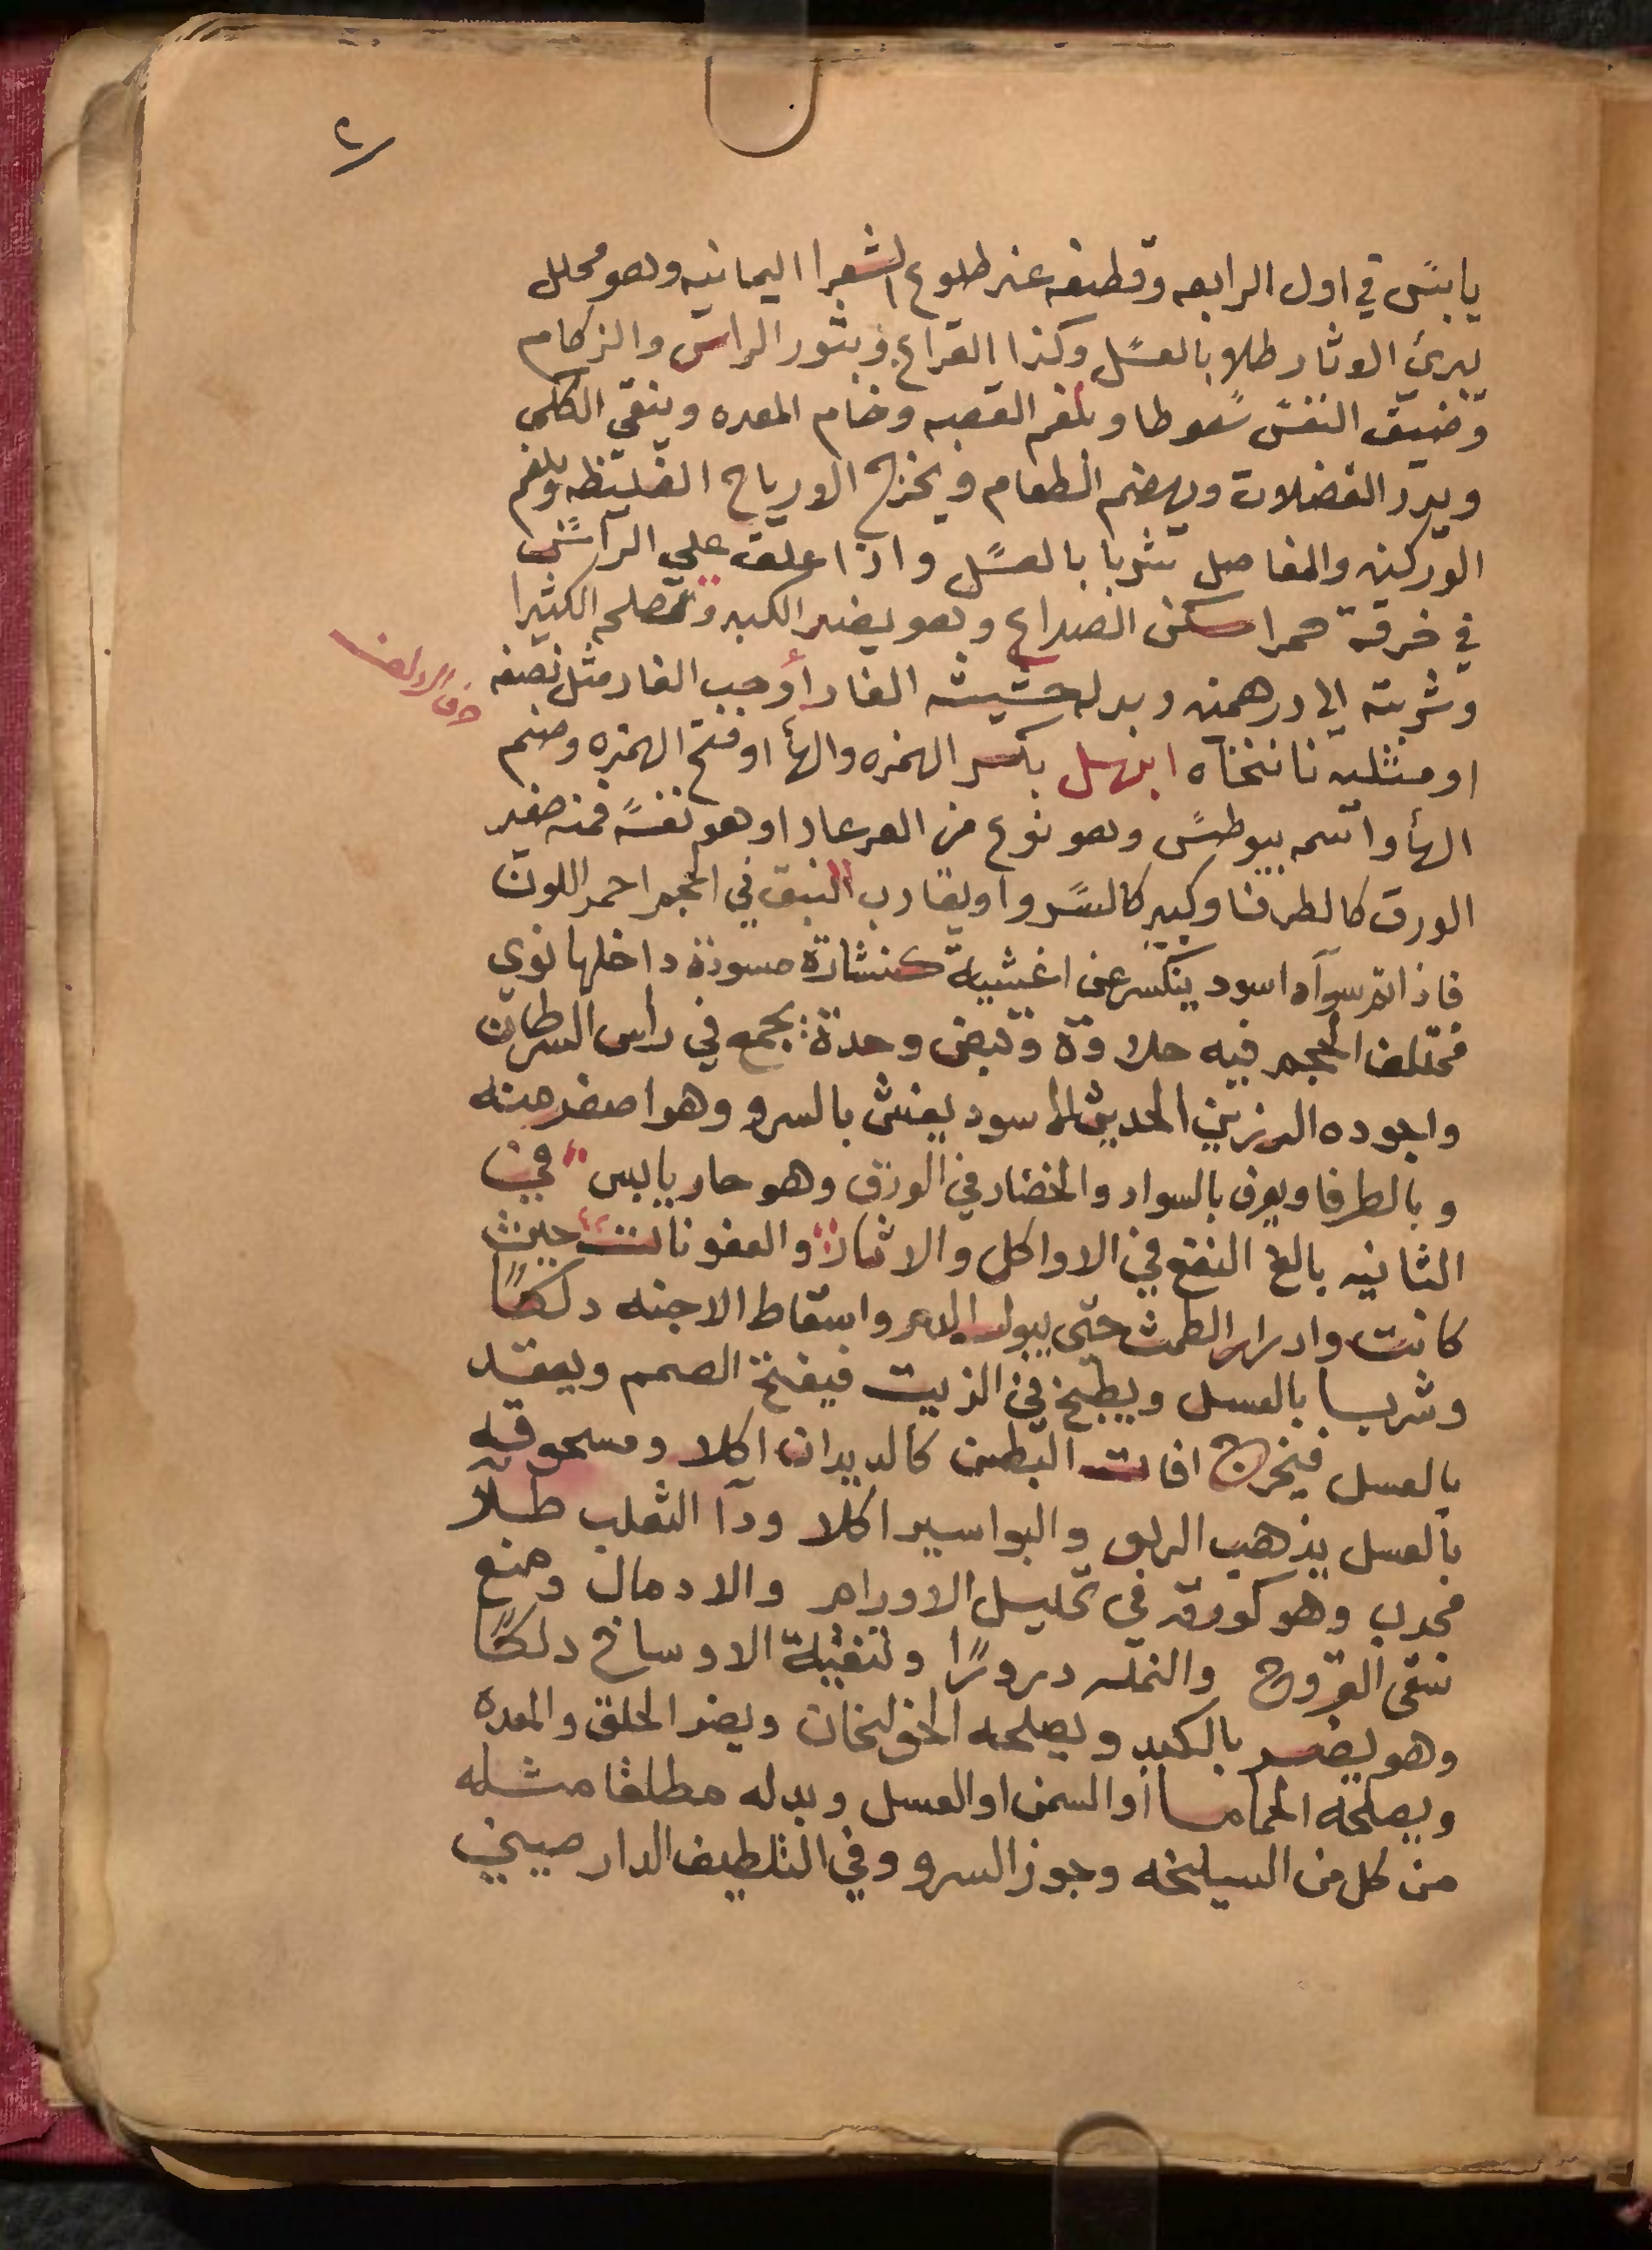 ٢
يابس في اول الرابعه وقطفه عند طلوع الشعرا اليمانيه وهو محلل
يبرئ الاوثار طلا بالعسل وكذا القراع وبثور الراس والزكام
وضيق النفس سعوطا وبلغم القصبه وخام المعده وينقي الكلى
ويدر الفضلات ويهضم الطعام ويخرج الارياح الغليظه وبلغم
الوركين والمفاصل شربا بالعسل واذا علق علي الراس
في خرقة حمرا سكن الصداع وهو يضر الكبد وتصلحه الكثيرا
وشربته الى درهمين وبدله حشيشه الغار او حب الغار مثل نصفه
او مثليه نانخاه ابهل بكسر الهمزه والهأ او فتح الهمزه وضم
الهأ واسمه بيوطس وهو نوع من العرعار او هو نفسه فمنه صغير
الورق كالطرفا وكبير كالسرو او يقارب النبق في الحجم احمر اللون
فاذا تم سواده اسود ينكسر عن اغشية كنشارة مسودة داخلها نوي
مختلف الحجم فيه حلاوة وقبض وحدة يجمع في راس السرطان
واجوده الرزين الحديث الاسود يغش بالسرو وهو اصغر منه
وبالطرفا ويعرف بالسواد والخضار في الورق وهو حار يابس في
الثانيه بالغ النفع في الاواكل والاثار والعفونات حيث
كانت وادرار الطمث حتى يبول الدم واسقاط الاجنه دلكا
وشربا بالعسل ويطبخ في الزيت فيفتح الصمم ويعقد
بالعسل فيخرج افات البطن كالديدان اكلا ومسحوقه
بالعسل يذهب الربو والبواسير اكلا ودآ الثعلب طلا
مجرب وهو كورقه في تحليل الاورام والادمال ومنع
نتقى القروح والنمله درورًا وتنقية الاوساخ دلكًا
وهو يضر بالكبد ويصلحه الخولنجان ويضر الحلق والمعده
ويصلحه الحماما او السمن او العسل وبدله مطلقا مثله
من كل من السيلخه وجوز السرو وفي التلطيف الدارصيني